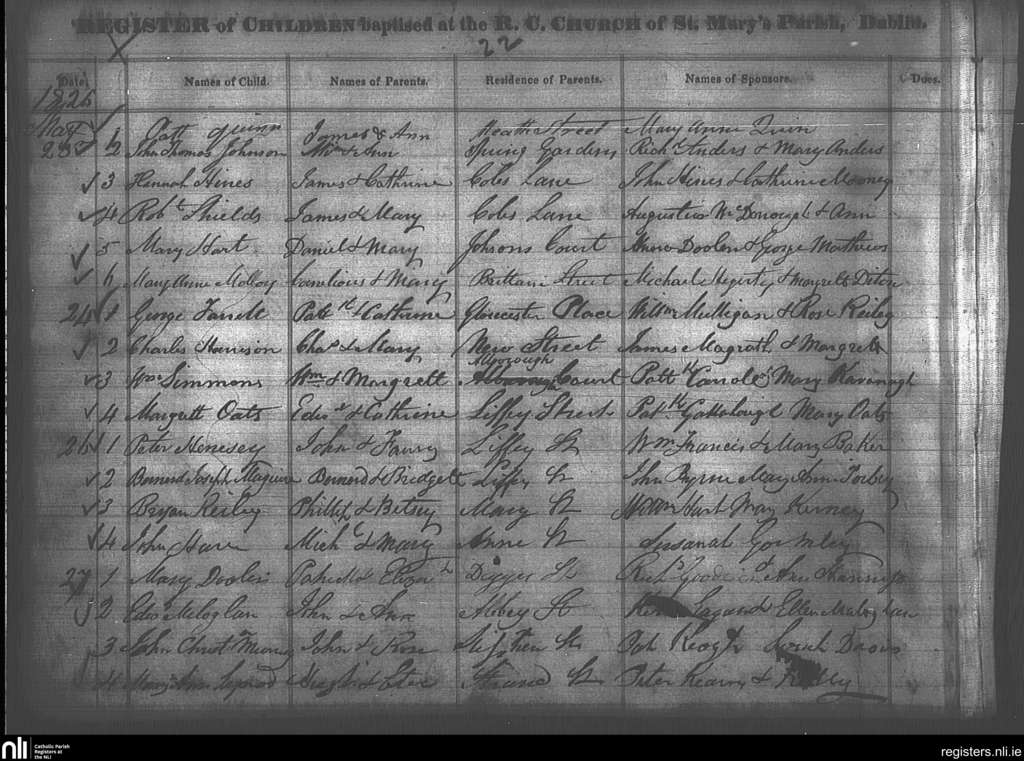 REGISTER of CHILDREN baptised at the R. C. CHURCH of St. Mary's Parish, Dublin.
22
Date. Names of Child. Names of Parents. Residence of Parents. Names of Sponsors. Does.
1826
May
1 Patt Quinn James & Ann Heath Street Mary Anne Quin
23 2 John Thomas Johnson Wm & Ann Spring Gardens Richd Anders & Mary Anders
3 Hannah Hines James & Cathrine Coles Lane John Hines & Cathrine Mooney
4 Robt Shields James & Mary Coles Lane Augustus McDonough & Ann
5 Mary Hart Daniel & Mary Johsons Court Doolen & George Matthews
6 Mary Anne Molloy & Mary Brittain Street Michael Hegerty & Margrett
24 1 George Farrell Patt & Cathrine Gloucester Place Willm Mulligan & Rose Reiley
2 Charles Harrison Chas & Mary New Street James Magrath & Margrett
3 Wm Simmons Wm & Margrett Alborough Court Patt Carrole & Mary Kavanagh
4 Margrett Oats Edwd & Cathrine Liffey Street Patk Mary Oats
26 1 Peter Henesey John & Fanny Liffey St Wm Francis & Mary Baker
2 Bernard Joseph Maguire Bernard & Bridgett Liffey St John Byrne Mary Ann
3 Bryan Reiley Phillip & Betsey Mary St Willm Hart Mary Kerney
4 John Hare Michl & Mary Anne St Susanah Gormley
27 1 Mary Doolin Patrick & Elizath Digges St Richd & Ann
2 Edwd John & Ann Abbey St Eagan & Ellen
3 John Christr Murray John & Rose Stephen St Pat Keogh Sarah Davis
4 Mary Ann Joseph & Strand St Peter Kearns &
nli Catholic Parish
Registers at
the NLI
registers.nli.ie